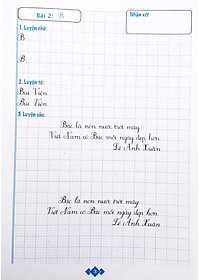 Bài 2: B
Nhận xét:
1. Luyện chữ:
B
B
2. Luyện từ:
Bùi Viện
Bùi Viện
3. Luyện câu:
Bác là non nước trời mây
Việt Nam có Bác mỗi ngày đẹp hơn.
Lê Anh Xuân
Bác là non nước trời mây
Việt Nam có Bác mỗi ngày đẹp hơn.
Lê Anh Xuân
3